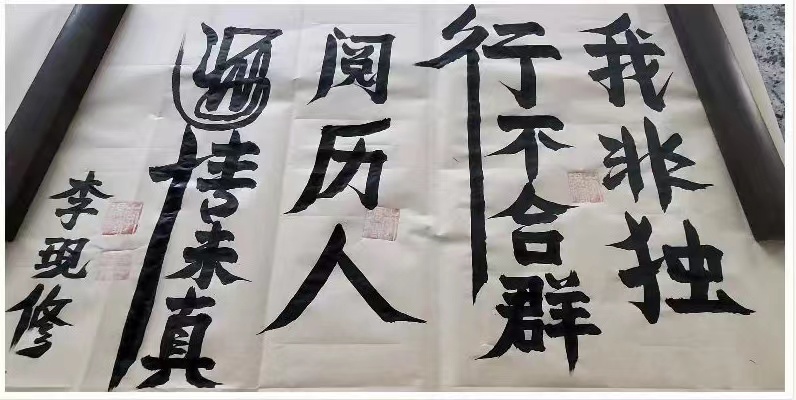 我非独
行不合群
阅历人
情未真
李现修